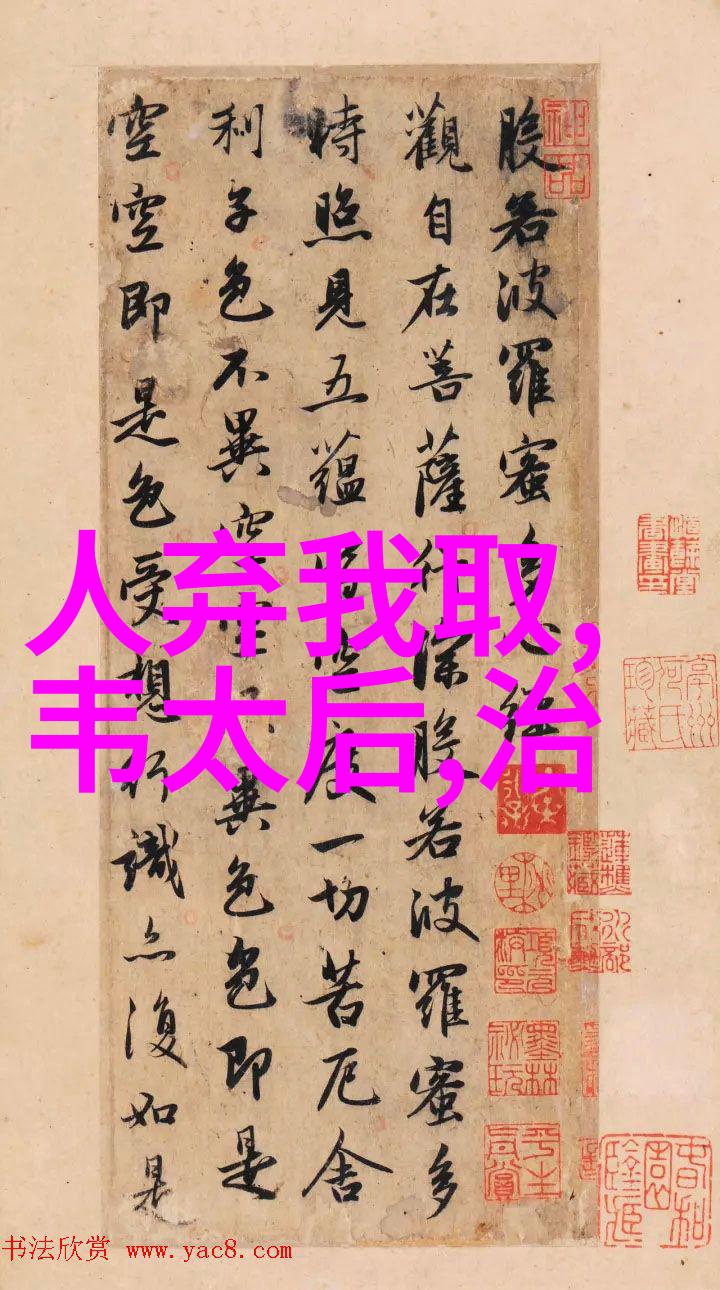 般若波羅蜜多心經
觀自在菩薩行深般若波羅蜜多
時照見五蘊皆空度一切苦厄舍
利子色不異空空不異色色即是
空空即是色受想行識亦復如是
人弃我取,
韦太后,治
神品
墨林祕玩
书法欣赏 www.yac8.com